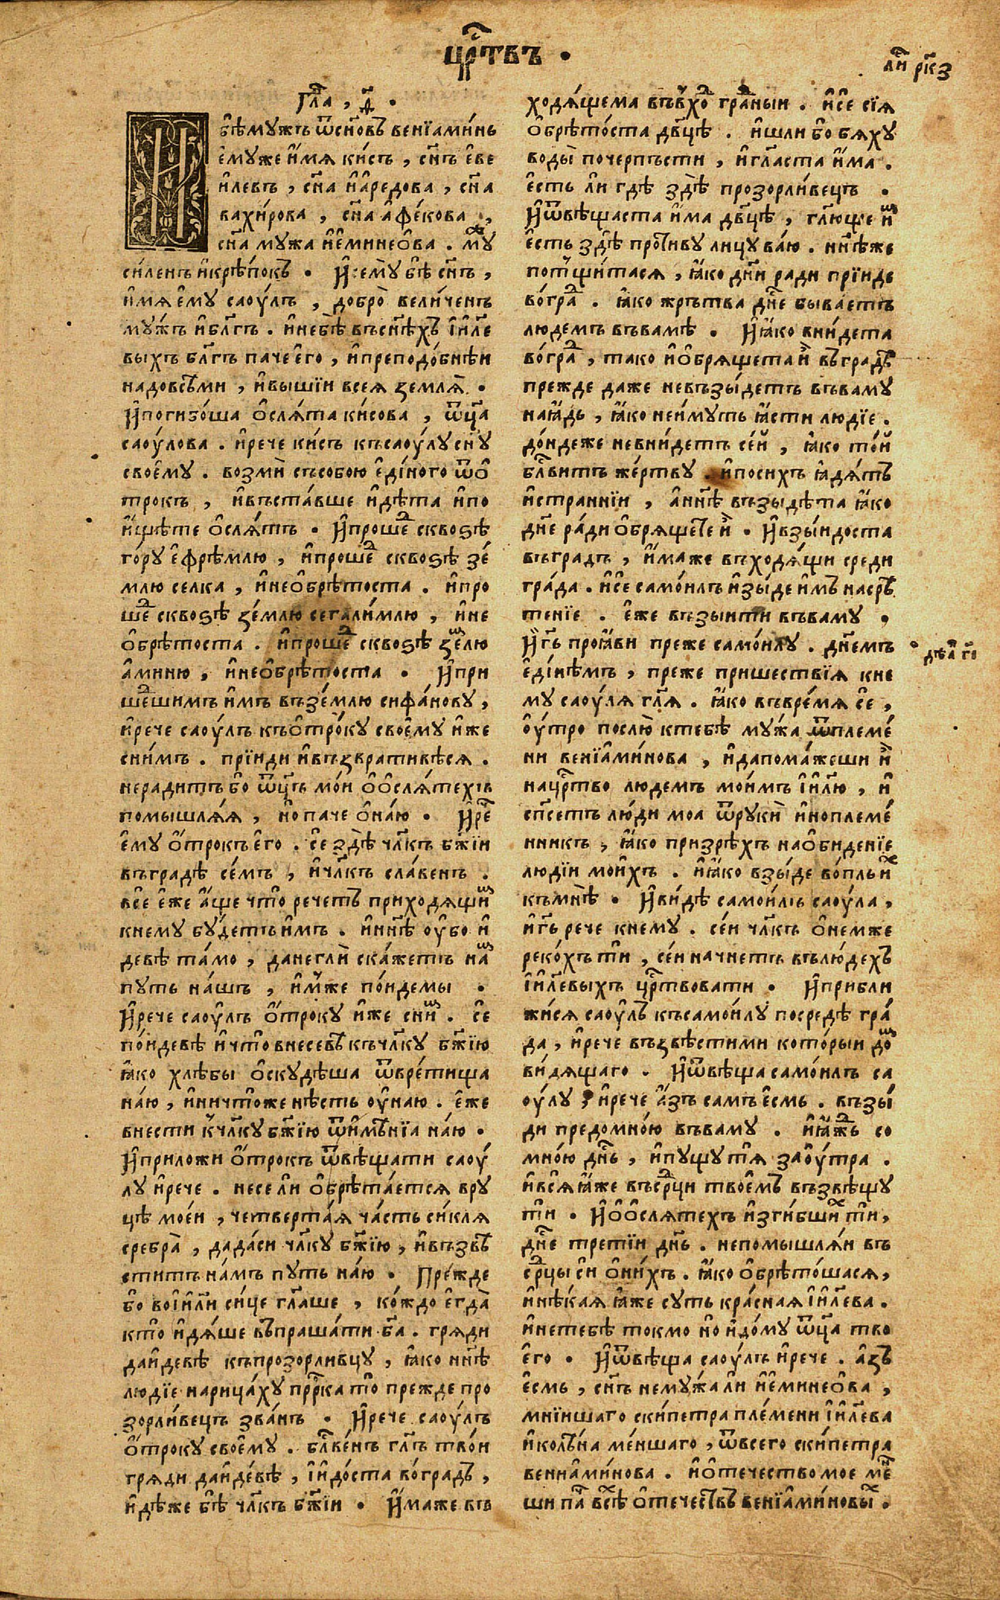 цр҃твъ ·
лⷭ҇ рк҃з
гла҃ , ѳ҃ .
И бѣ мужъ ѿ сн҃овъ венїаминь
ему же имя кисъ , сн҃ъ еве
илевъ , сн҃а иаредова , сн҃а
вахирова , сн҃а афекова ,
сн҃а мужа иеминеова . мꙋⷤ
силенъ и крѣпокъ . И ему бѣ сн҃ъ ,
имя ему саоулъ , добро величенъ
мужъ и бл҃гъ . и не бѣ въ сн҃ѣхъ ии҃ле
выхъ бл҃гъ паче его , и преподобнѣи
надо всѣми , и вышїи всея земля .
И погибоша ослята кисова , ѿц҃а
саоулова . и рече кисъ къ саоулу сн҃у
своему . возми съ собою единого ѿ о
трокъ , и въставше идѣта и по
ищѣте ослятъ . И прошеⷣ сквозѣ
гору ефремлю , и прошеⷣ сквозѣ зе
млю селка , и не обрѣтоста . и про
шеⷣ сквозѣ землю сегалимлю , и не
обрѣтоста . и прошеⷣ сквозѣ землю
аминю , и не обрѣтоста . И при
шеⷣшимъ имъ въ землю сифанову ,
и рече саоулъ къ отроку своему иже
с нимъ . прїиди и възвративѣся .
не радитъ бо ѿц҃ъ мои о ослятехъ
помышляя , но паче о наю . И реⷱ
ему отрокъ его . се здѣ чл҃къ бж҃їи
въ градѣ семъ , и чл҃къ славенъ .
все еже аще что речетъ приходящиⷨ
к нему будетъ имъ . и нн҃ѣ оубо и
девѣ тамо , да негли скажетъ наⷨ
путь нашъ , имже поидемы .
И рече саоулъ отроку иже с ниⷨ . се
поидевѣ и что внесевѣ къ чл҃ку бж҃їю
яко хлѣбы оскудѣша ѿ вретища
наю , и ничтоже нѣсть оу наю . еже
внести к чл҃ку бж҃їю ѿ имѣнїа наю .
И приложи отрокъ ѿвѣщати саоу
лу и рече . не се ли обрѣтается в ру
цѣ моеи , четвертая часть сикля
сребра , да даси чл҃ку бж҃їю , и възвѣ
ститъ намъ путь наю . Прежде
бо во ии҃ли сице гл҃аше , кождо егда
кто идяше въпрашати бг҃а . гряди
да идевѣ къ прозорливцу , яко нн҃ѣ
людїе нарицаху прⷪ҇рка то прежде про
зорливецъ званъ . И рече саоулъ
отроку своему . блг҃енъ гл҃ъ твои
гряди да идевѣ , и идоста во градъ ,
идѣже бѣ чл҃къ бж҃їи . Има же въ
ходящема въ вⷯо граⷣныи . и се сїя
обрѣтоста дв҃цѣ . ишли бо бяху
воды почерпъсти , и гл҃аста има .
есть ли гдѣ здѣ прозорливецъ .
И ѿвѣщаста има дв҃цѣ , гл҃юще иⷨ
есть здѣ противу лицу ваю . нн҃ѣ же
потщитася , яко дн҃и ради прїиде
во граⷣ . яко жрътва дн҃е бываетъ
людемъ въ вамѣ . И яко внидета
во граⷣ , тако и обрящета и въ градѣ
прежде даже не възыдетъ въ ваму
на ядь , яко не имуть ясти людїе .
дондеже не внидетъ сей , яко той
блⷭ҇витъ жертву . и по сихъ ядятъ
и страннїи , а нн҃ѣ възыдѣта яко
дн҃е ради обрящете и . И взыидоста
въ градъ , има же въходящи среди
града . и се самоилъ изыде имъ на срѣ
тенїе . еже възыити въ ваму .
И гь҃ прояви преже самоилу . дн҃емъ
дѣаⷩ҇ гі҃
единѣмъ , преже пришествїя к не
му саоуля гл҃я . яко въ время се ,
оутро послю к тебѣ мужа ѿ племе
ни венїаминова , и да помажеши и
на црⷭ҇тво людемъ моимъ ии҃лю , и
сп҃сетъ люди моа ѿ руки иноплеме
нникъ , яко призрѣхъ на обиденїе
людїи моихъ . и яко взыде вопль иⷯ
къ мнѣ . И видѣ самоилъ саоула ,
и гь҃ рече к нему . сеи чл҃къ о немже
рекохъ ти , сеи начнетъ въ людехъ
ии҃левыхъ црⷭ҇твовати . И прибли
жися саоулъ къ самоилу посредѣ гра
да , и рече възвѣсти ми которыи доⷨ
видящаго . И ѿвѣща самоилъ са
оулу , и рече азъ самъ есмь . възы
ди предо мною въ ваму . и яжⷣь со
мною дн҃ь , и пущу тя заоутра .
и вся яже въ срⷣци твоемъ възвѣщу
ти . И о ослятехъ изгибшиⷯ ти ,
дн҃е третїи дн҃ь . не помышляи въ
срⷣцы си о нихъ . яко обрѣтошася ,
и нѣкая яже суть красная ии҃лева .
и не тебѣ токмо но и дому ѿц҃а тво
его . И ѿвѣща саоулъ и рече . азъ
есмь , сн҃ъ не мужа ли иеминеова ,
мнїишаго скипетра племени ии҃лева
и колѣна меншаго , ѿ всего скипетра
венїаминова . и отечество мое меⷩ
ши паⷱ всⷯѣ отечествъ венїаминовыⷯ .